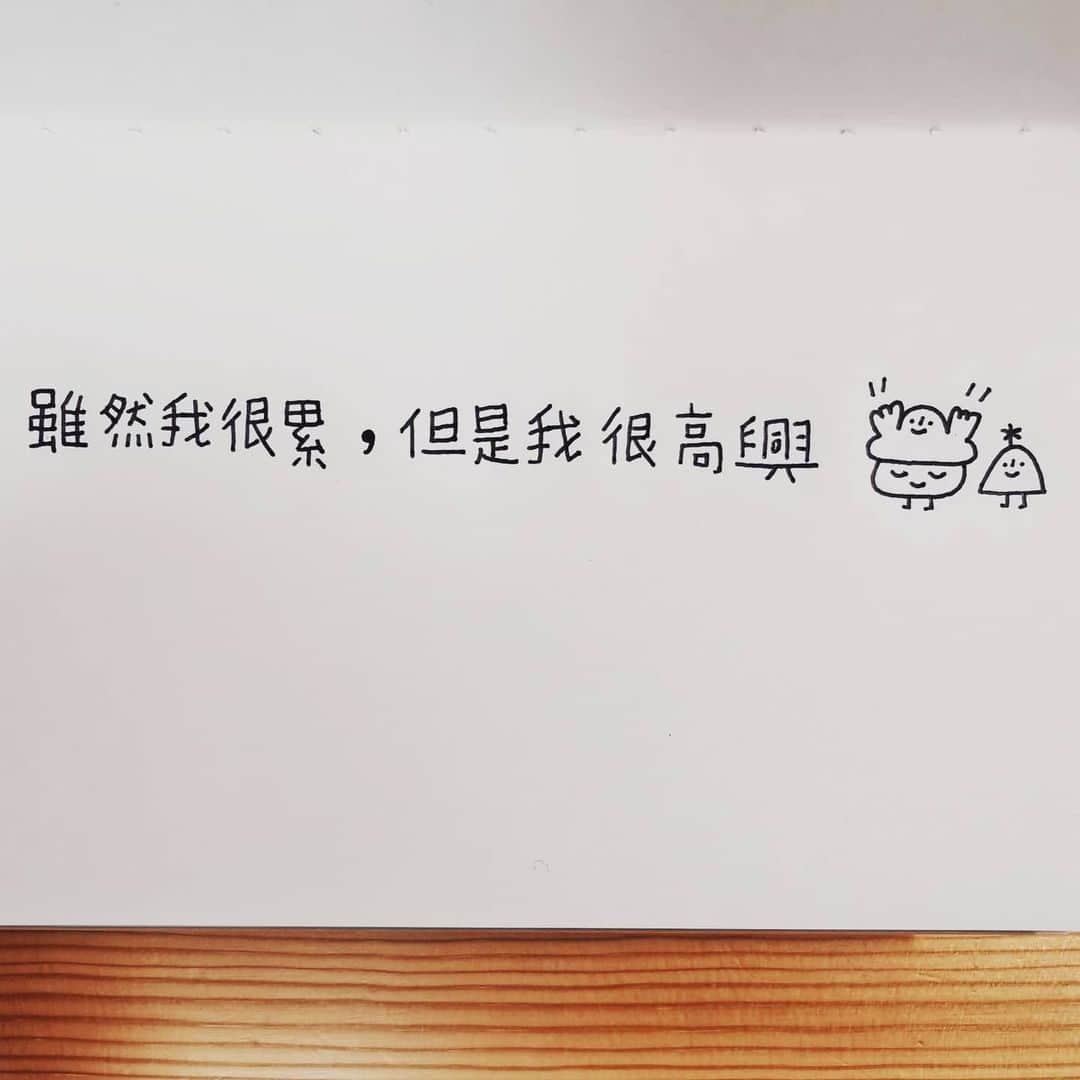 雖然我很累，但是我很高興